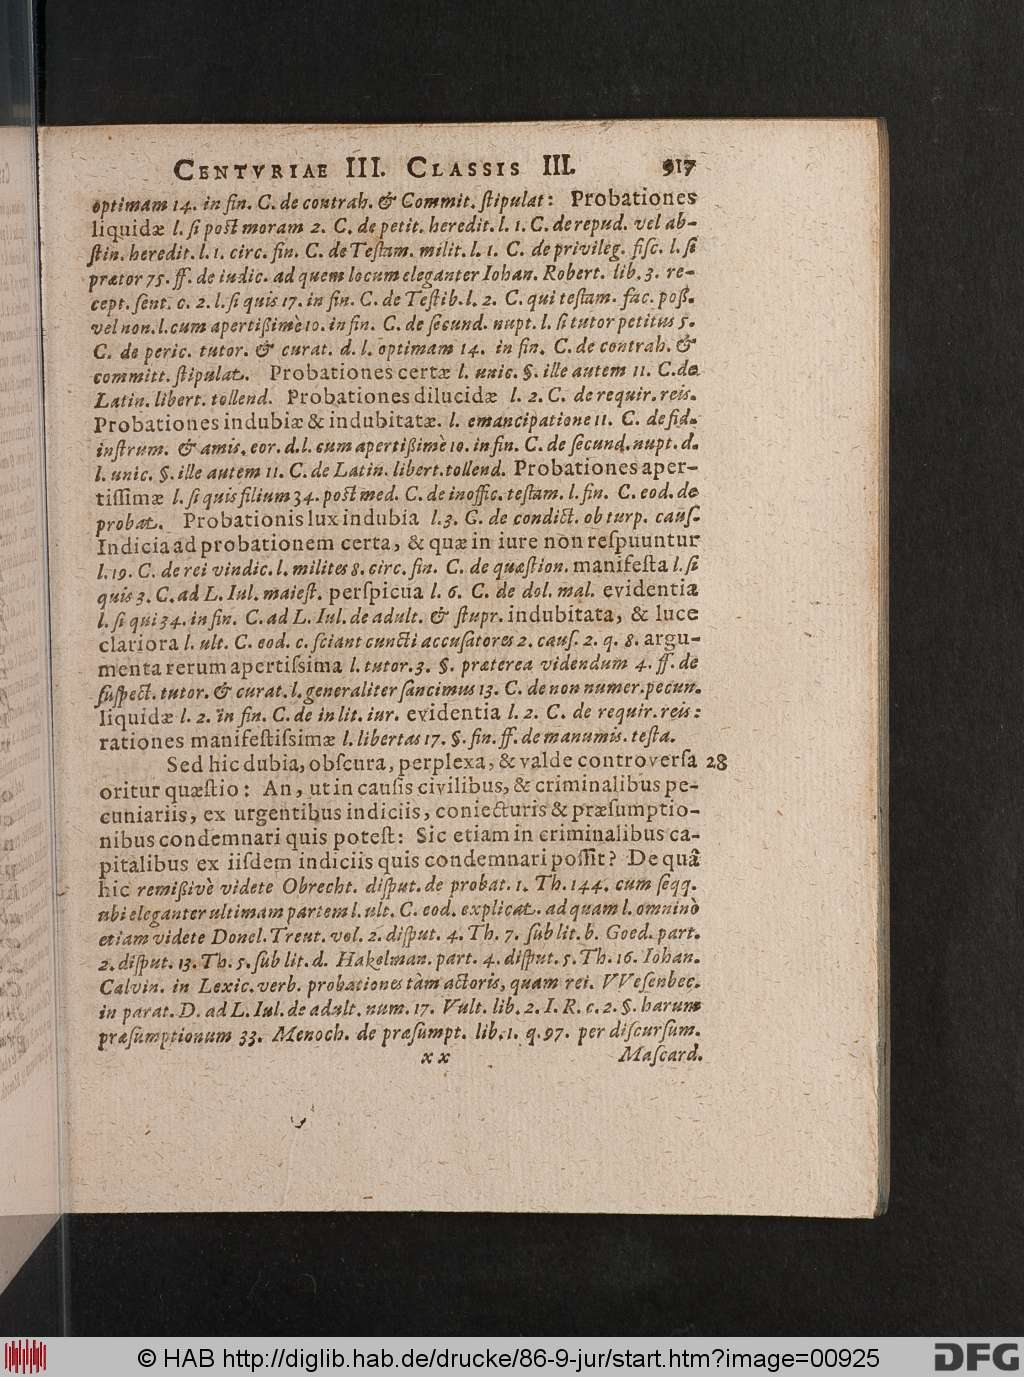 CENTVRIAE III. CLASSIS III. 917
optimam 14. in fin. C. de contrah. & Commit. ſtipulat: Probationes
liquidæ l. ſi poſt moram 2. C. de petit. heredit. l. 1. C. de repud. vel ab-
ſtin. heredit. l. 1. circ. fin. C. de Teſtam. milit. l. 1. C. de privileg. fiſc. l. ſi
prætor 75. ff. de iudic. ad quem locum eleganter Iohan. Robert. lib. 3. re-
cept. ſent. c. 2. l. ſi quis 17. in fin. C. de Teſtib. l. 2. C. qui teſtam. fac. poß.
vel non. l. cum apertißimè 10. in fin. C. de ſecund. nupt. l. ſi tutor petitus 5.
C. de peric. tutor. & curat. d. l. optimam 14. in fin. C. de contrah. &
committ. ſtipulat. Probationes certæ l. unic. §. ille autem 11. C. de
Latin. libert. tollend. Probationes dilucidæ l. 2. C. de requir. reis.
Probationes indubiæ & indubitatæ. l. emancipatione 11. C. de fid.
inſtrum. & amis. eor. d. l. cum apertißimè 10. in fin. C. de ſecund. nupt. d.
l. unic. §. ille autem 11. C. de Latin. libert. tollend. Probationes aper-
tiſſimæ l. ſi quis filium 34. poſt med. C. de inoffic. teſtam. l. fin. C. eod. de
probat. Probationis lux indubia l. 3. C. de condict. ob turp. cauſ.
Indicia ad probationem certa, & quæ in iure non reſpuuntur
l. 19. C. de rei vindic. l. milites 8. circ. fin. C. de quæſtion. manifeſta l. ſi
quis 3. C. ad L. Iul. maieſt. perſpicua l. 6. C. de dol. mal. evidentia
l. ſi qui 34. in fin. C. ad L. Iul. de adult. & ſtupr. indubitata, & luce
clariora l. ult. C. eod. c. ſciant cuncti accuſatores 2. cauſ. 2. q. 8. argu-
menta rerum apertiſsima l. tutor. 3. §. præterea videndum 4. ff. de
ſuſpect. tutor. & curat. l. generaliter ſancimus 13. C. de non numer. pecun.
liquidæ l. 2. in fin. C. de in lit. iur. evidentia l. 2. C. de requir. reis:
rationes manifeſtiſsimæ l. libertas 17. §. fin. ff. de manumis. teſta.
Sed hic dubia, obſcura, perplexa, & valde controverſa 28
oritur quæſtio: An, ut in cauſis civilibus, & criminalibus pe-
cuniariis, ex urgentibus indiciis, coniecturis & præſumptio-
nibus condemnari quis poteſt: Sic etiam in criminalibus ca-
pitalibus ex iiſdem indiciis quis condemnari poſſit? De quâ
hic remißivè videte Obrecht. diſput. de probat. 1. Th. 144. cum ſeqq.
ubi eleganter ultimam partem l. ult. C. eod. explicat. ad quam l. omninò
etiam videte Donel. Treut. vol. 2. diſput. 4. Th. 7. ſub lit. b. Goed. part.
2. diſput. 13. Th. 5. ſub lit. d. Hakelman. part. 4. diſput. 5. Th. 16. Iohan.
Calvin. in Lexic. verb. probationes tàm actoris, quam rei. VVeſenbec.
in parat. D. ad L. Iul. de adult. num. 17. Vult. lib. 2. I. R. c. 2. §. harum
præſumptionum 33. Menoch. de præſumpt. lib. 1. q. 97. per diſcurſum.
x x Maſcard.
© HAB http://diglib.hab.de/drucke/86-9-jur/start.htm?image=00925 DFG